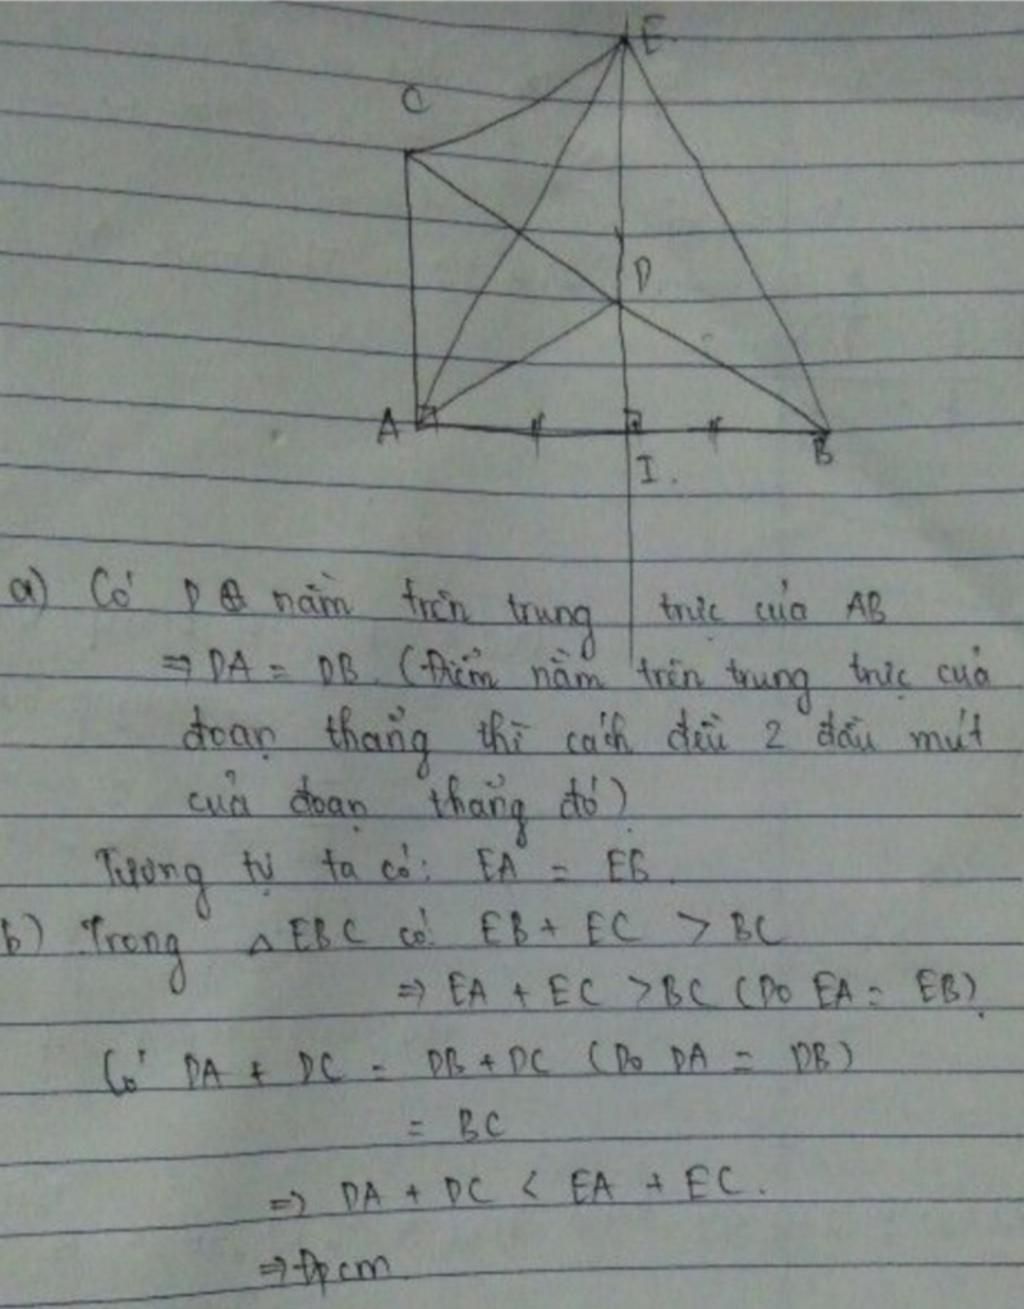 E
C
D
A
B
I.
a) Có D nằm trên trung trực của AB
⇒ DA = DB. (Điểm nằm trên trung trực của
đoạn thẳng thì cách đều 2 đầu mút
của đoạn thẳng đó)
Tương tự ta có: EA = EB.
b) Trong △ EBC có: EB + EC > BC
⇒ EA + EC > BC (Do EA = EB).
Có DA + DC = DB + DC (Do DA = DB)
= BC
⇒ DA + DC < EA + EC.
⇒ Đpcm